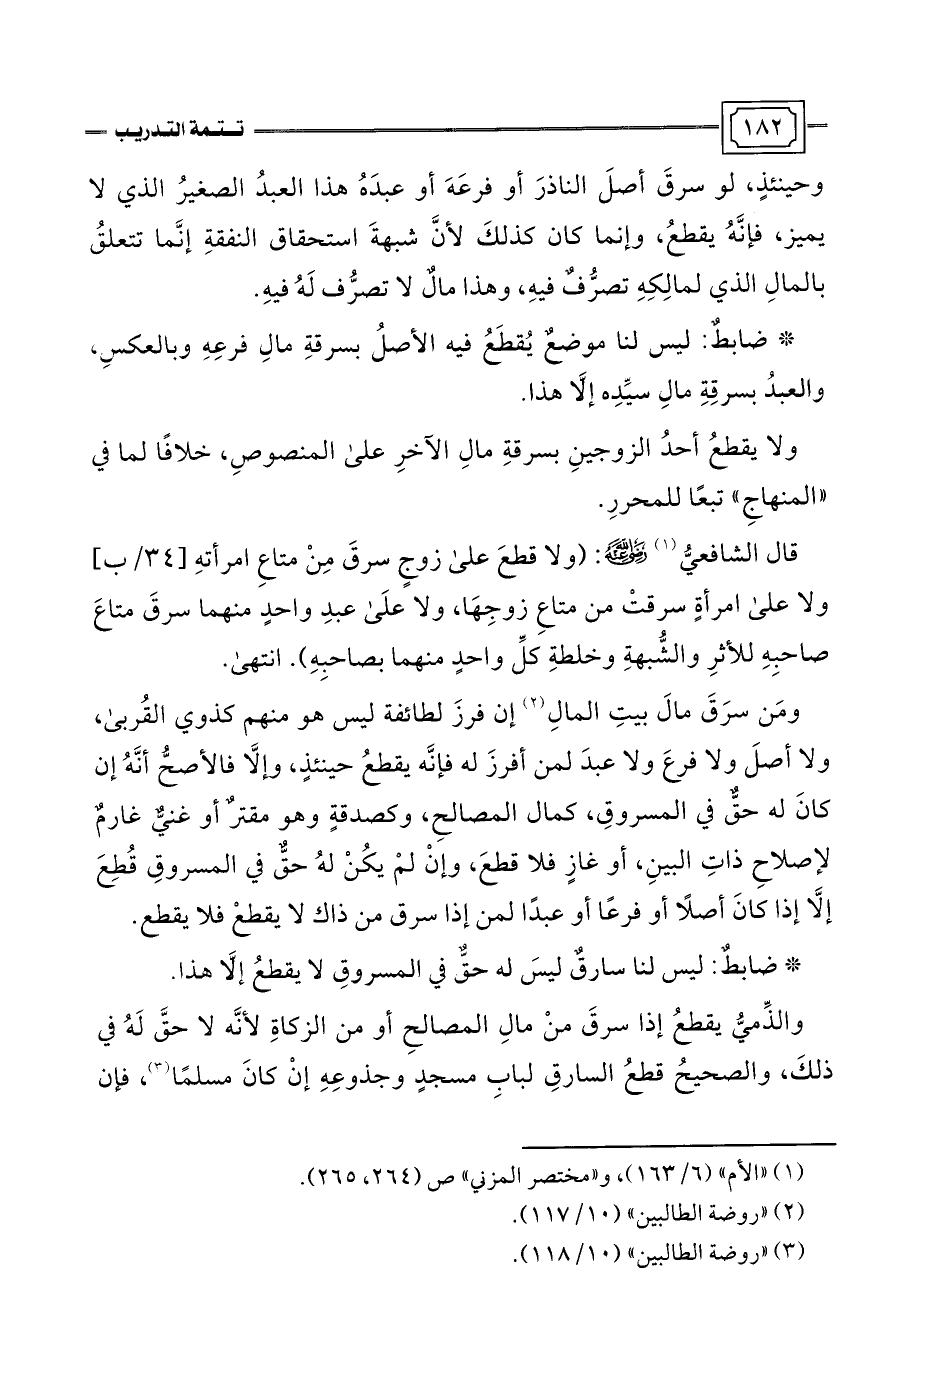 ١٨٢
تـتـمة التـدريـب
وحينئذٍ، لو سرقَ أصلَ الناذرَ أو فرعَهَ أو عبدَهُ هذا العبدُ الصغيرُ الذي لا
يميز، فإنَّهُ يقطعُ، وإنما كان كذلكَ لأنَّ شبهةَ استحقاق النفقةِ إنَّما تتعلقُ
بالمالِ الذي لمالِكِهِ تصرُّفٌ فيهِ، وهذا مالٌ لا تصرُّف لَهُ فيهِ.
* ضابطٌ: ليس لنا موضعٌ يُقطَعُ فيه الأصلُ بسرقةِ مالِ فرعِهِ وبالعكسِ،
والعبدُ بسرقِةِ مالِ سيِّدِه إلَّا هذا.
ولا يقطعُ أحدُ الزوجينِ بسرقةِ مالِ الآخرِ علىٰ المنصوصِ، خلافًا لما في
«المنهاجِ» تبعًا للمحررِ.
قال الشافعيُّ (١) رَضِيَ اللهُ عَنْهُ: (ولا قطعَ علىٰ زوجٍ سرقَ مِنْ متاعِ امرأتهِ [٣٤/ ب]
ولا علىٰ امرأةٍ سرقتْ من متاعِ زوجِهَا، ولا علَىٰ عبدِ واحدٍ منهما سرقَ متاعَ
صاحبِهِ للأثرِ والشُّبهةِ وخلطةِ كلِّ واحدٍ منهما بصاحبِهِ). انتهىٰ.
ومَن سرَقَ مالَ بيتِ المالِ(٢) إن فرزَ لطائفة ليس هو منهم كذوي القُربىٰ،
ولا أصلَ ولا فرعَ ولا عبدَ لمن أفرزَ له فإنَّه يقطعُ حينئذٍ، وإلَّا فالأصحُّ أنَّهُ إن
كانَ له حقٌّ في المسروقِ، كمال المصالحِ، وكصدقةٍ وهو مقترٌ أو غنيٌّ غارمٌ
لإصلاحِ ذاتِ البينِ، أو غازٍ فلا قطعَ، وإنْ لمْ يكُنْ لهُ حقٌّ في المسروقِ قُطِعَ
إلَّا إذا كانَ أصلًا أو فرعًا أو عبدًا لمن إذا سرق من ذاك لا يقطعْ فلا يقطع.
* ضابطٌ: ليس لنا سارقٌ ليسَ له حقٌّ في المسروقِ لا يقطعُ إلَّا هذا.
والذِّميُّ يقطعُ إذا سرقَ منْ مالِ المصالحِ أو من الزكاةِ لأنَّه لا حقَّ لَهُ في
ذلكَ، والصحيحُ قطعُ السارقِ لبابِ مسجدٍ وجذوعِهِ إنْ كانَ مسلمًا(٣)، فإن
(١) «الأم» (٦/ ١٦٣)، و«مختصر المزني» ص (٢٦٤، ٢٦٥).
(٢) «روضة الطالبين» (١٠/ ١١٧).
(٣) «روضة الطالبين» (١٠/ ١١٨).